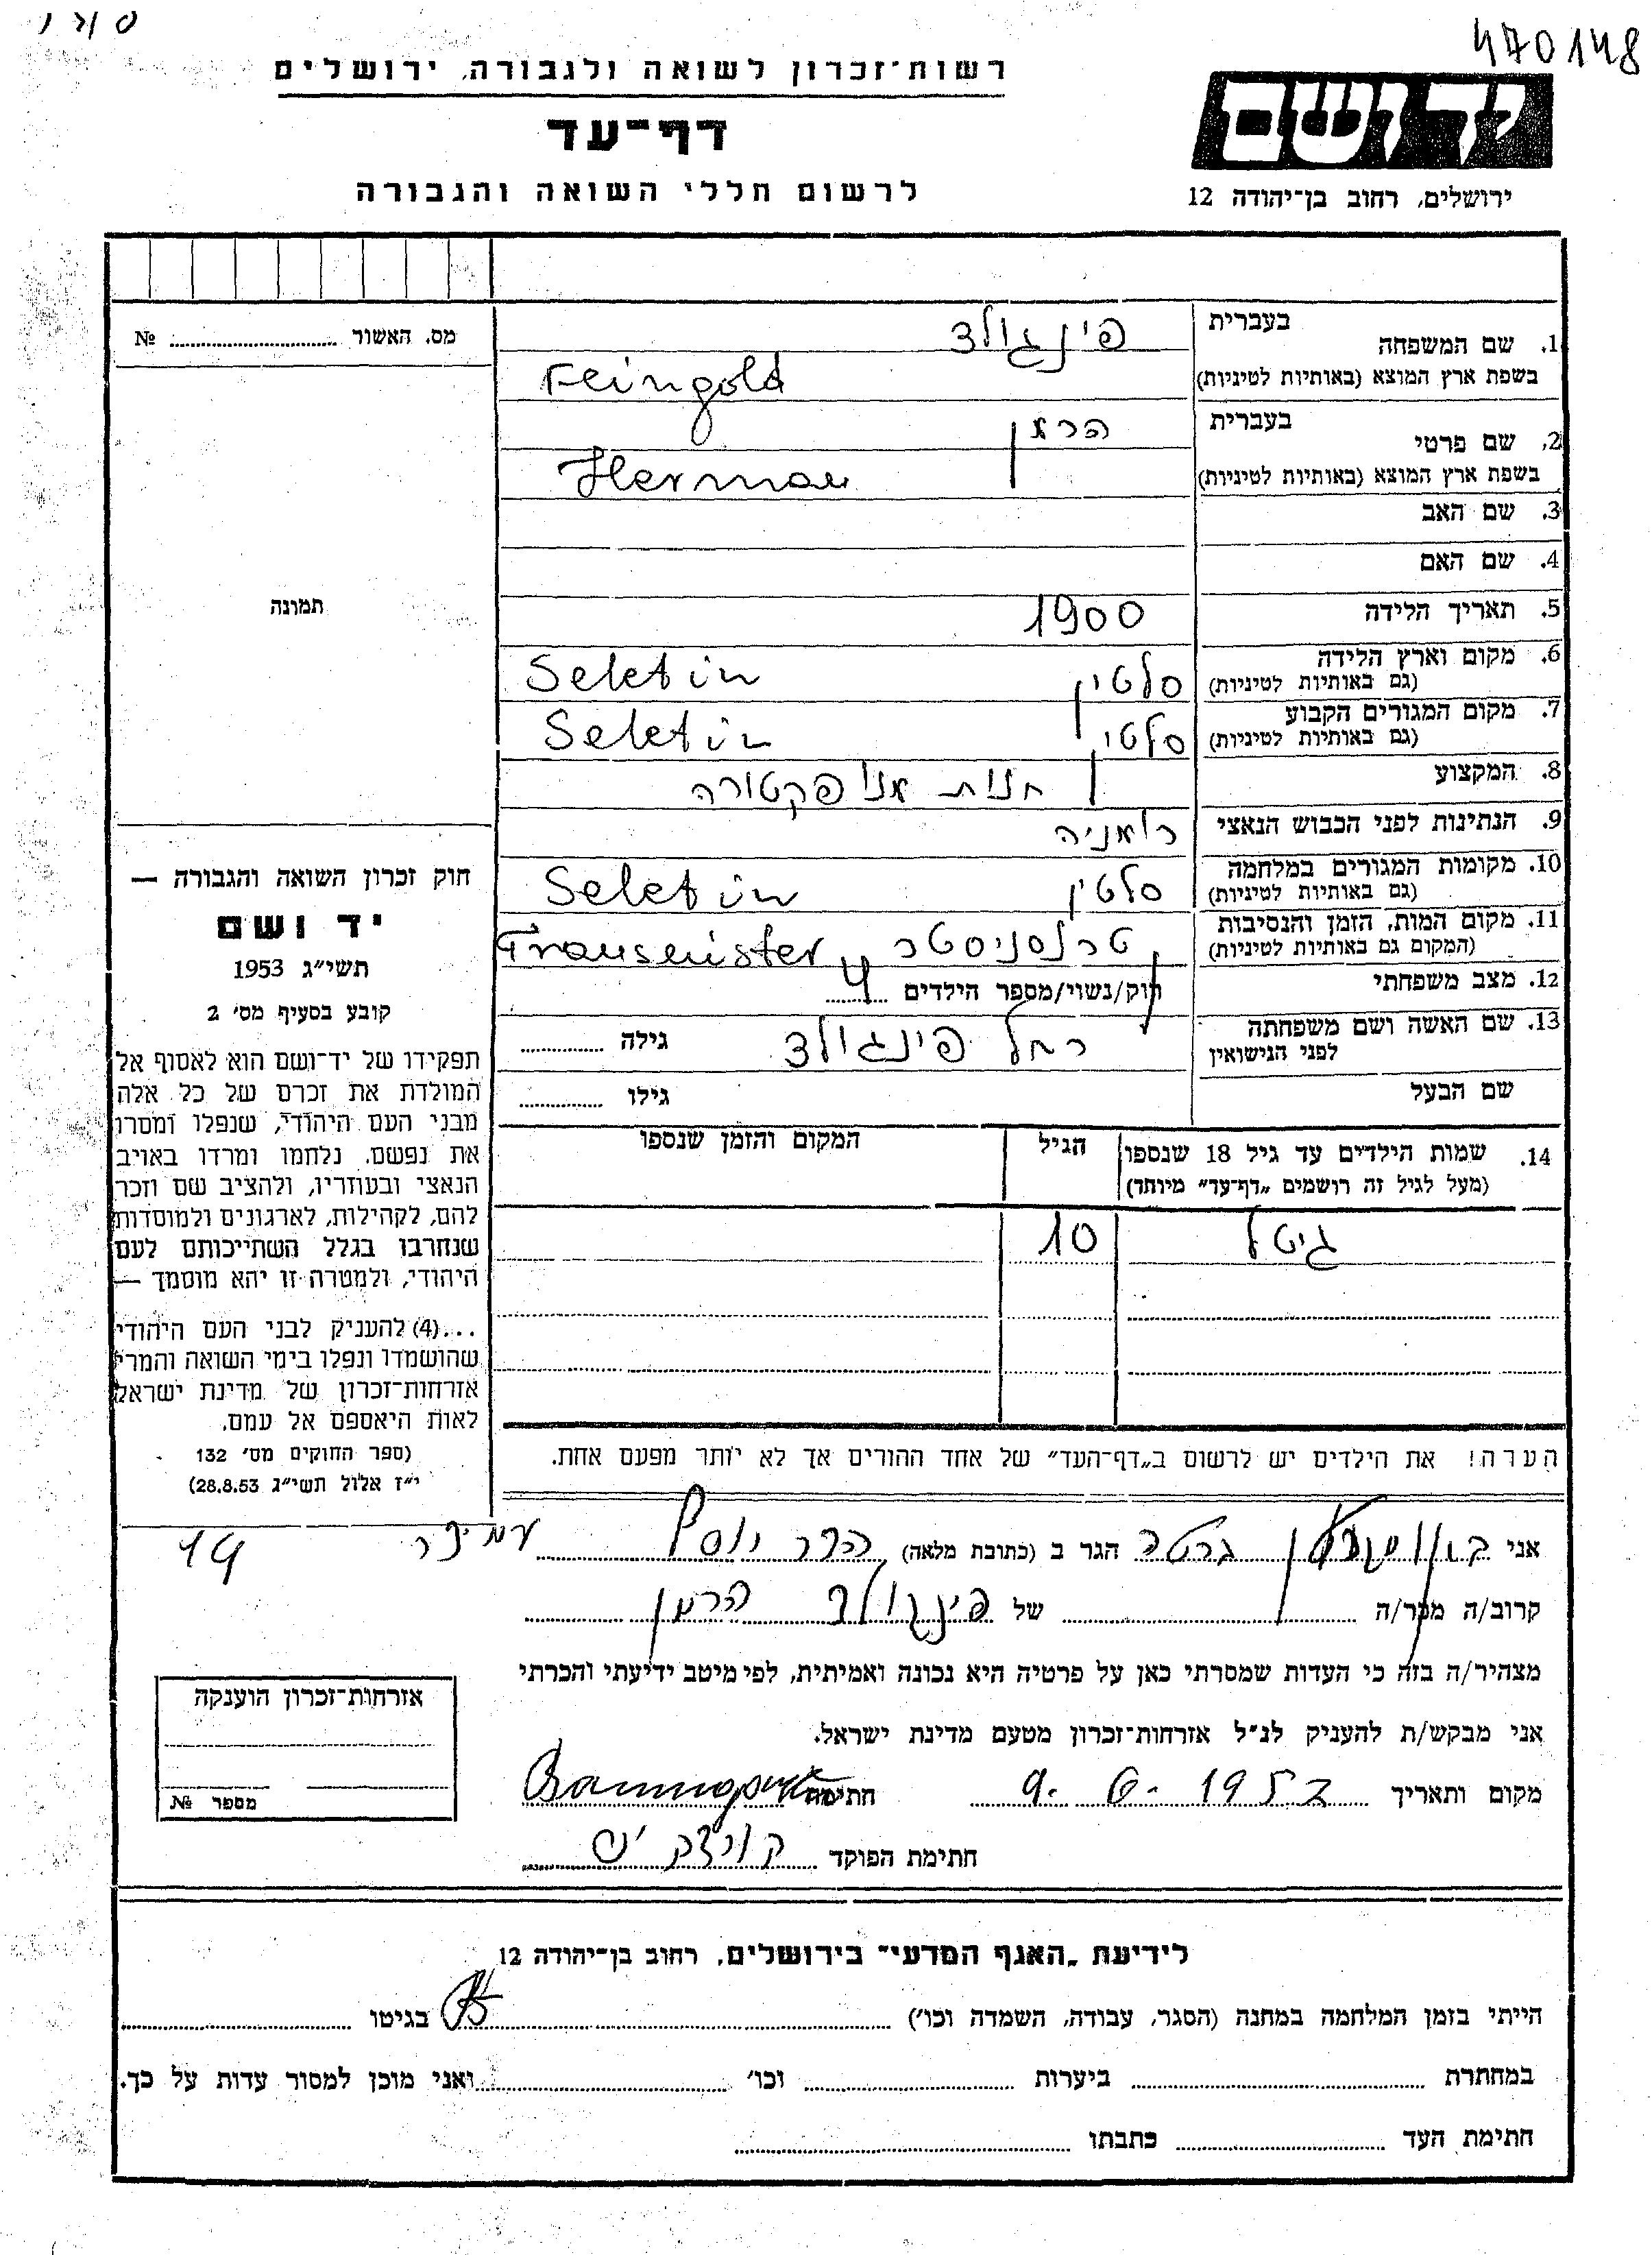 470148
רשות־זכרון לשואה ולגבורה, ירושלים
דף־עד
לרשום חללי השואה והגבורה
יד ושם
ירושלים, רחוב בן־יהודה 12
מס. האשור ........ №
תמונה
1. שם המשפחה בעברית פינגולד
בשפת ארץ המוצא (באותיות לטיניות) Feingold
2. שם פרטי בעברית הרמן
בשפת ארץ המוצא (באותיות לטיניות) Herman
3. שם האב
4. שם האם
5. תאריך הלידה 1900
6. מקום וארץ הלידה (גם באותיות לטיניות) סלטין Seletin
7. מקום המגורים הקבוע (גם באותיות לטיניות) סלטין Seletin
8. המקצוע חנות מנופקטורה
9. הנתינות לפני הכבוש הנאצי רומניה
10. מקומות המגורים במלחמה (גם באותיות לטיניות) סלטין Seletin
11. מקום המות, הזמן והנסיבות (המקום גם באותיות לטיניות) טרנסניסטר Transnister
12. מצב משפחתי רווק/נשוי/מספר הילדים 4
13. שם האשה ושם משפחתה לפני הנישואין רחל פינגולד גילה ........
שם הבעל גילו ........
14. שמות הילדים עד גיל 18 שנספו (מעל לגיל זה רושמים „דף־עד” מיוחד) הגיל המקום והזמן שנספו
גיטל 10
הערה! את הילדים יש לרשום ב„דף־העד” של אחד ההורים אך לא יותר מפעם אחת.
חוק זכרון השואה והגבורה —
יד ושם
תשי״ג 1953
קובע בסעיף מס׳ 2
תפקידו של יד־ושם הוא לאסוף אל
המולדת את זכרם של כל אלה
מבני העם היהודי, שנפלו ומסרו
את נפשם, נלחמו ומרדו באויב
הנאצי ובעוזריו, ולהציב שם וזכר
להם, לקהילות, לארגונים ולמוסדות
שנחרבו בגלל השתייכותם לעם
היהודי, ולמטרה זו יהא מוסמך —
...(4) להעניק לבני העם היהודי
שהושמדו ונפלו בימי השואה והמרי
אזרחות־זכרון של מדינת ישראל
לאות היאספם אל עמם.
(ספר החוקים מס׳ 132
י״ז אלול תשי״ג 28.8.53)
אני ברטה הגר ב (כתובת מלאה) עמידר 19
קרוב/ה מכר/ה ........ של פינגולד הרמן
מצהיר/ה בזה כי העדות שמסרתי כאן על פרטיה היא נכונה ואמיתית, לפי מיטב ידיעתי והכרתי
אני מבקש/ת להעניק לנ״ל אזרחות־זכרון מטעם מדינת ישראל.
מקום ותאריך 9. 6. 195 חתימה
חתימת הפוקד
אזרחות־זכרון הוענקה
מספר №
לידיעת „האגף המדעי” בירושלים, רחוב בן־יהודה 12
הייתי בזמן המלחמה במחנה (הסגר, עבודה, השמדה וכו׳) ........ בגיטו ........
במחתרת ........ ביערות ........ וכו׳ ........ ואני מוכן למסור עדות על כך.
חתימת העד ........ כתבתו ........